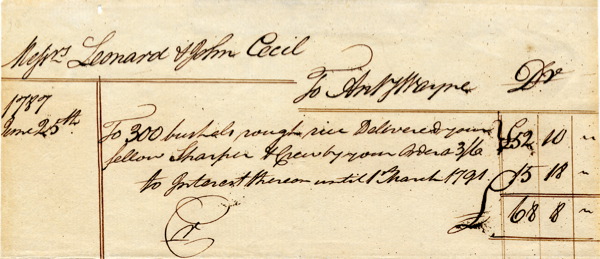 Messrs Leonard & John Cecil
To Ant Wayne Dr
1787
June 25th
To 300 bushels rough rice Delivered your
fellow Sharper & Crew by your Order a 3/6 £52 10 "
to Interest thereon until 1st March 1791 15 18 "
68 8 "
Cr